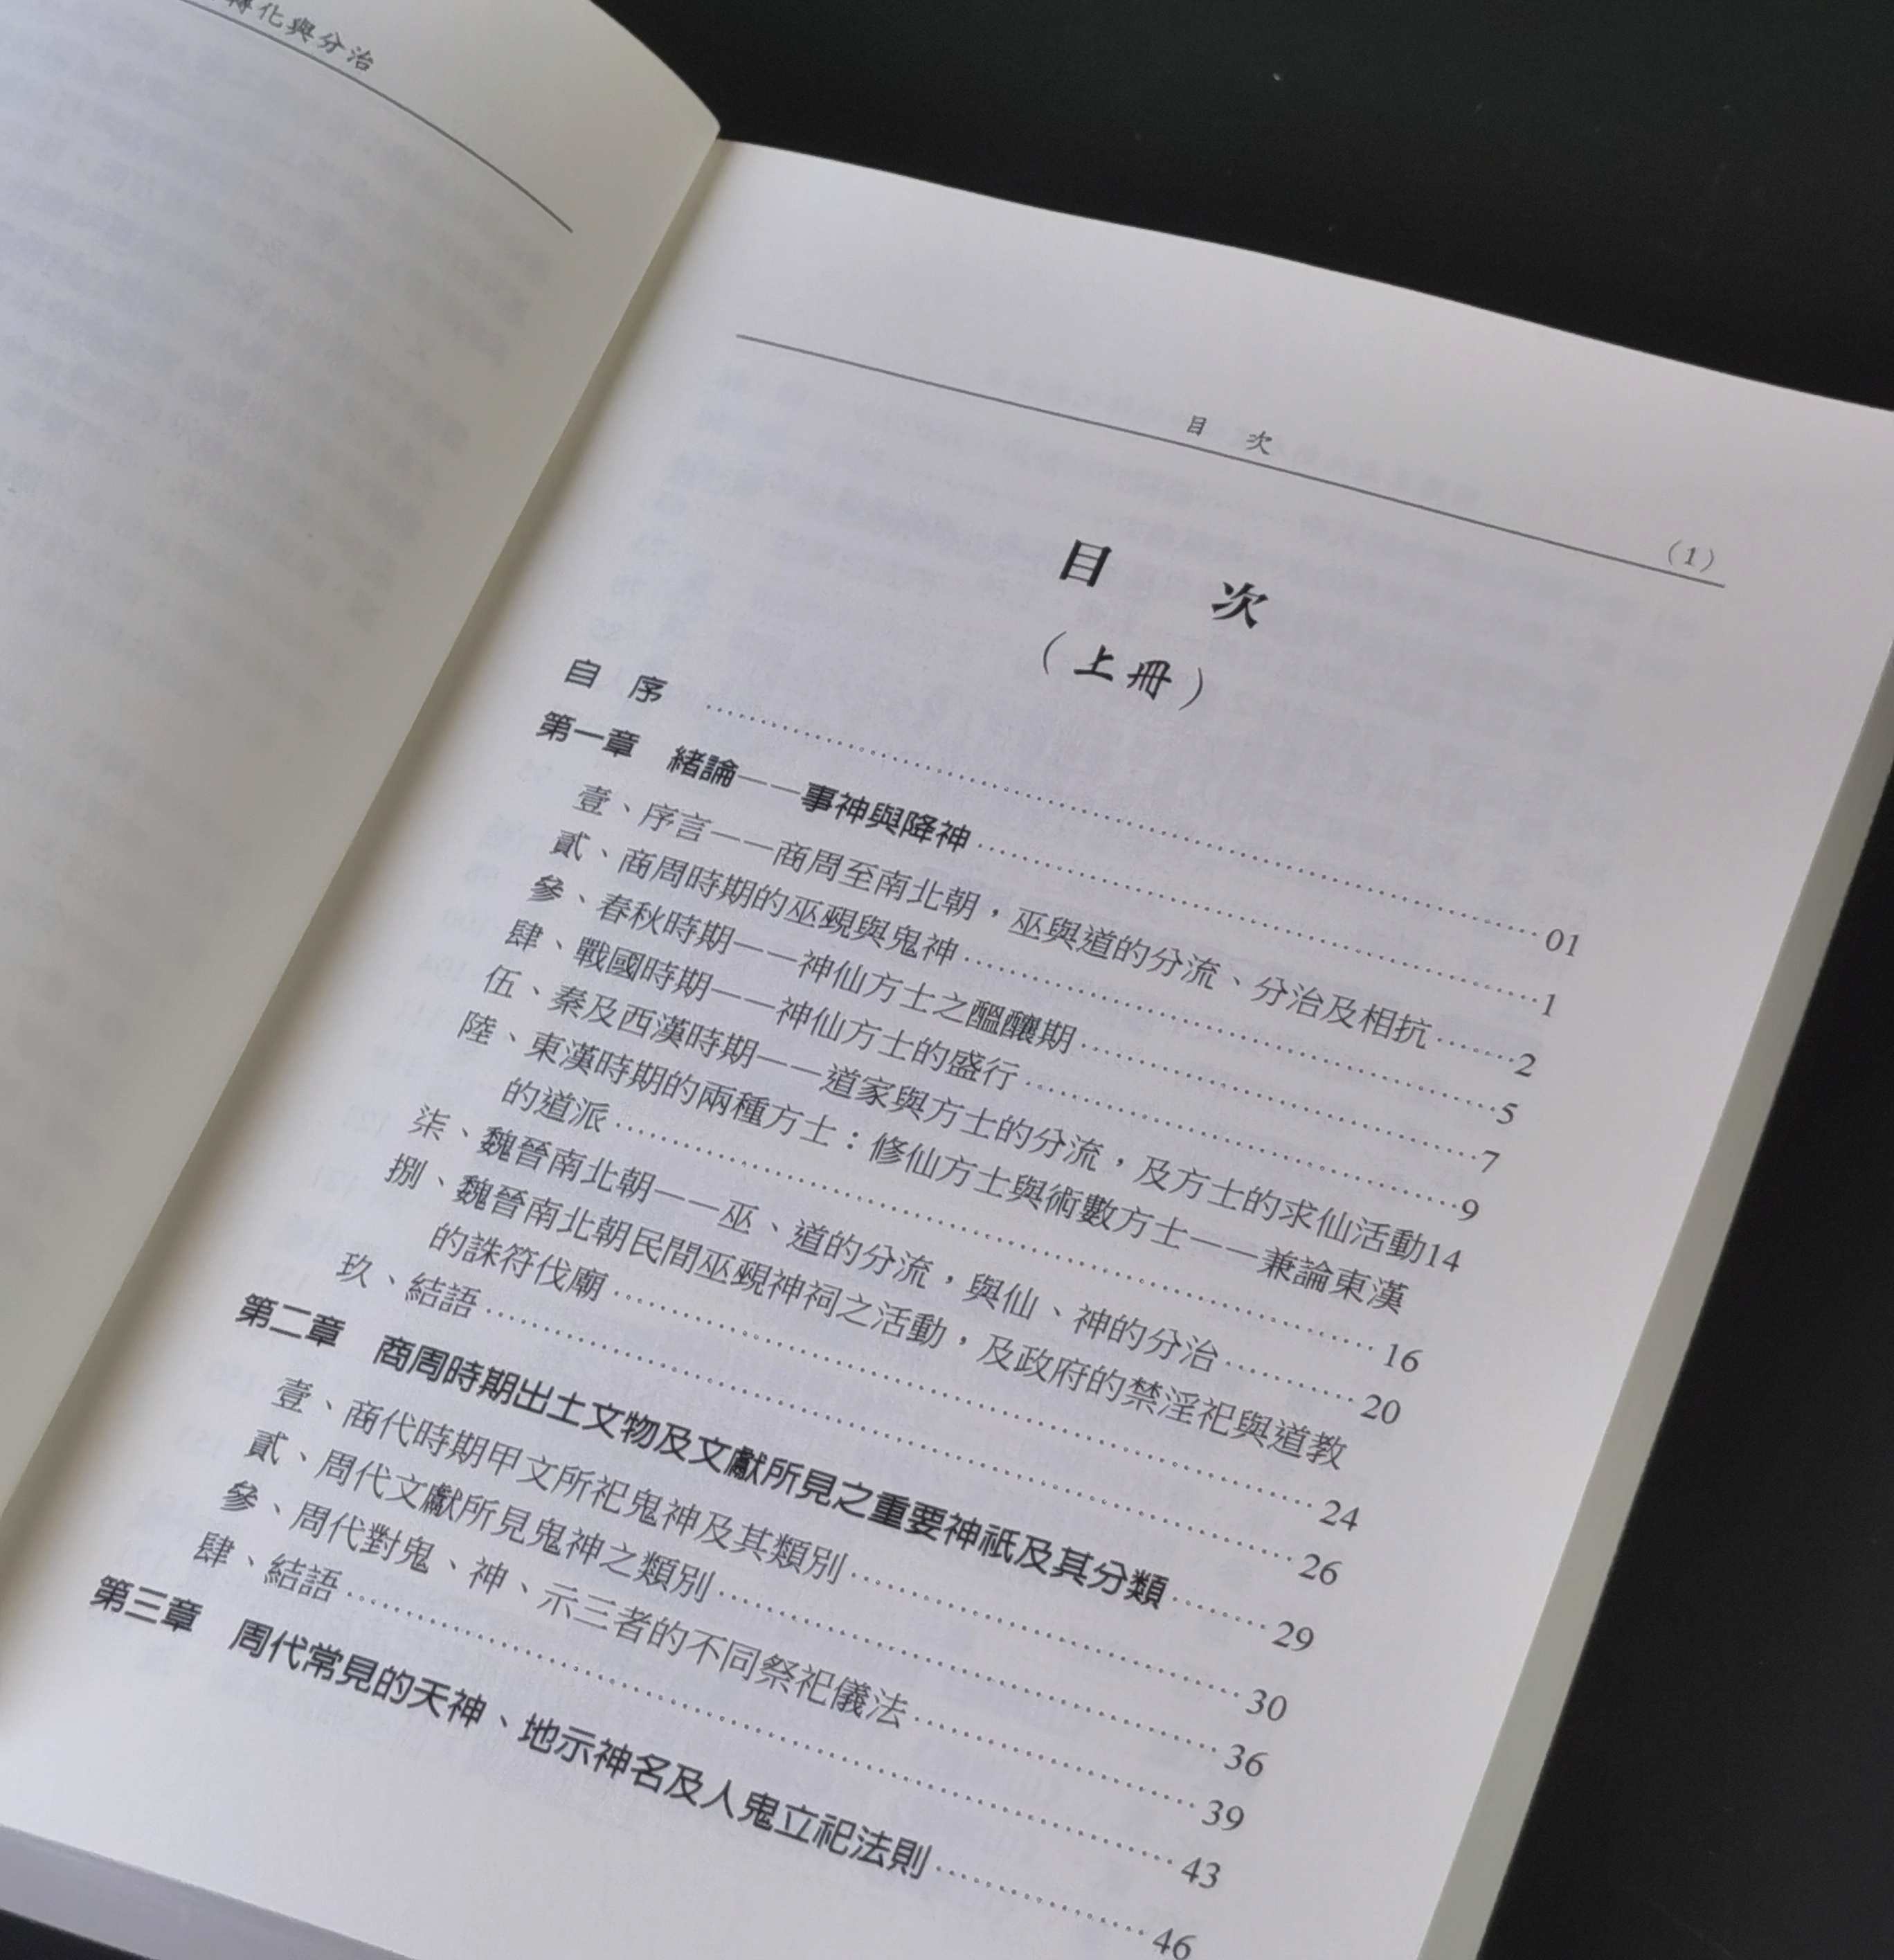 轉化與分治
目 次
(1)
目 次
（上冊）
自 序 ……… 01
第一章 緒論——事神與降神 ……… 1
壹、序言——商周至南北朝，巫與道的分流、分治及相抗 ……… 2
貳、商周時期的巫覡與鬼神 ……… 5
參、春秋時期——神仙方士之醞釀期 ……… 7
肆、戰國時期——神仙方士的盛行 ……… 9
伍、秦及西漢時期——道家與方士的分流，及方士的求仙活動14
陸、東漢時期的兩種方士：修仙方士與術數方士——兼論東漢
的道派 ……… 16
柒、魏晉南北朝——巫、道的分流，與仙、神的分治 ……… 20
捌、魏晉南北朝民間巫覡神祠之活動，及政府的禁淫祀與道教
的誅符伐廟 ……… 24
玖、結語 ……… 26
第二章 商周時期出土文物及文獻所見之重要神祇及其分類 ……… 29
壹、商代時期甲文所祀鬼神及其類別 ……… 30
貳、周代文獻所見鬼神之類別 ……… 36
參、周代對鬼、神、示三者的不同祭祀儀法 ……… 39
肆、結語 ……… 43
第三章 周代常見的天神、地示神名及人鬼立祀法則 ……… 46